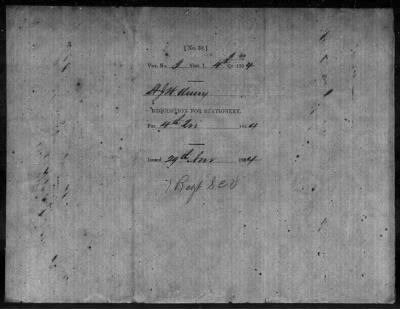 [No. 40.]
Vou. No. 2 Abst. L. 4th Qr 1864
REQUISITION FOR STATIONERY.
For 4th Qr 1864
Issued 29th Nov 1864
7 Regt S C V